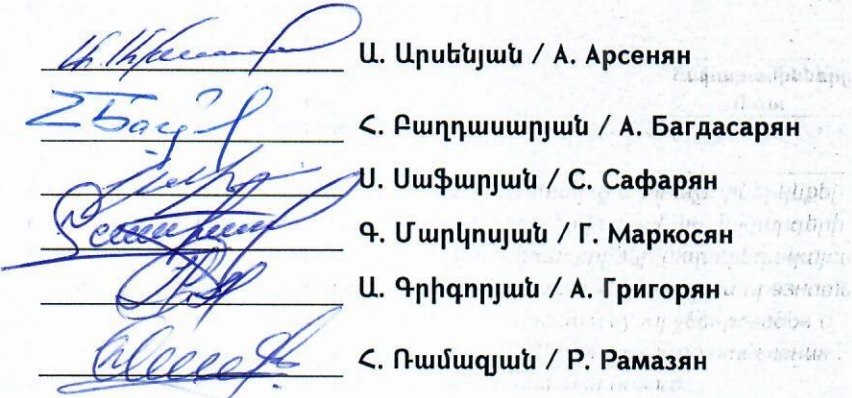 Ա. Արսենյան / А. Арсенян
Հ. Բաղդասարյան / А. Багдасарян
Ս. Սաֆարյան / С. Сафарян
Գ. Մարկոսյան / Г. Маркосян
Ա. Գրիգորյան / А. Григорян
Հ. Ռամազյան / Р. Рамазян